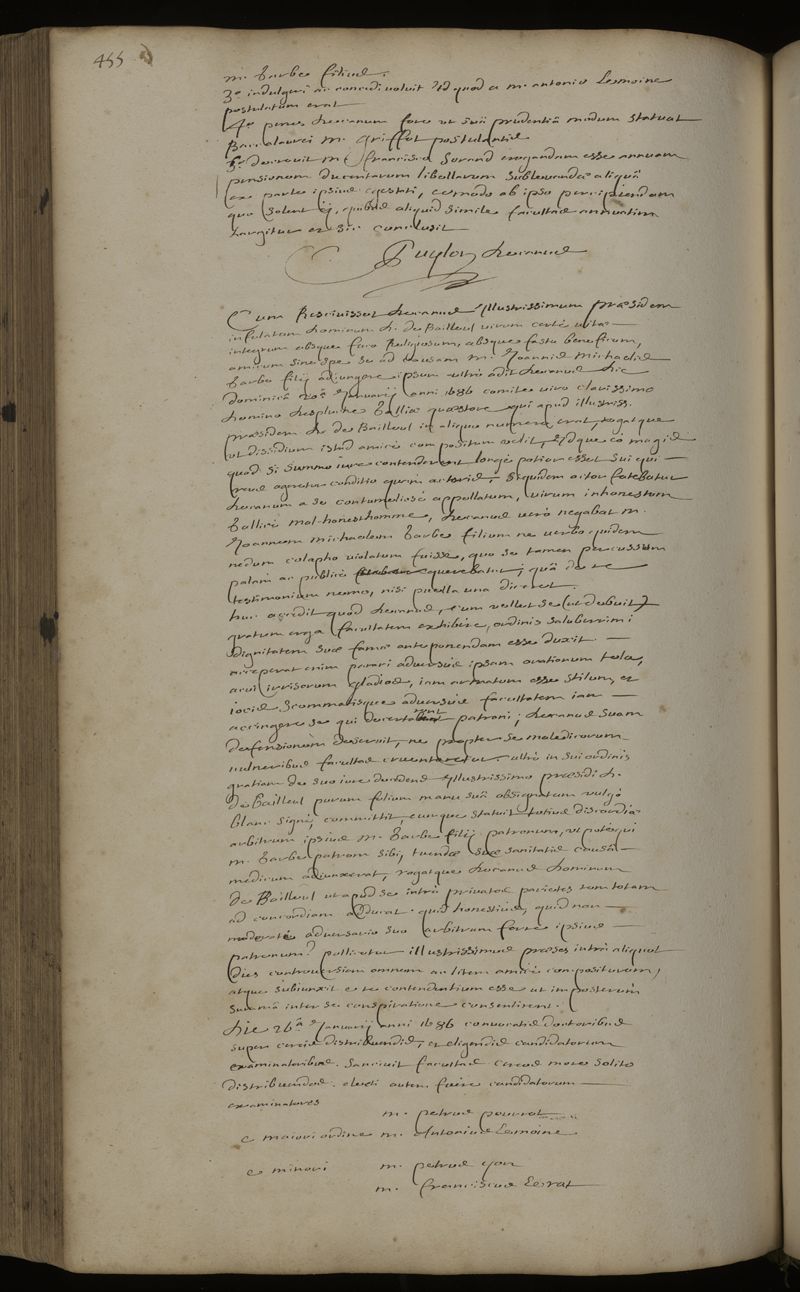 455
m. Barbes filius.
3° indulgeri ac concedi voluit id quod a m. antonio Lemoine
postulatum erat
4° penes decanum fore ut suâ prudentiâ modum statuat
Baccalaurei m. Griffet postulantis
5° decrevit m. francisco Sorand erogandam esse annuam
pensionem ducentarum libellarum sublevandæ aliquâ
ex parte ipsius egestati, eomodo ab ipso percipiendam
quo solent ij, quibus aliquid simile facultas annuatim
largitur et sic conclusit
Puylon decanus
Cum Rescivisset decanus Illustrissimum præsidem
infulatum dominum D. de Bailleul virum certè vitæ
integrum absque fuco Religiosum, absque fastu beneficum,
amicum sine spe se ad causam m. Joannis Michaelis
Barbes filij adjungere ipsum ultrò adit decanus die
dominicâ 20â Januarij anni 1686 comite viro clarissimo
domino despluches Galliæ quæstore qui apud illustriss.
præsidem D. de Bailleul in aliquo numero erat, rogatque
ut dissidium istud amicè compositum velit, idque eò magis
quod si summo iure contenderent longè potior esset sui qui
reus ageretur conditio quàm actoris, siquidem actor fatebatur
decanum a se contumeliosè appellatum, virum inhonestum
Gallicè mal-honesthomme, decanus verò negabat m.
Joannem Michaelem Barbes filium ne verbo quidem
nedum colapho violatum fuisse, quo se tamen percussum
palam ac publicè querebatur; quâ de re
testimonium nemo, nisi puella una diceret.
huc accedit quod decanus, cum vellet se (ut debuit)
gratum erga facultatem exhibere, ordinis saluberrimi
dignitatem suæ famæ anteponendam esse duxit.
acceperat enim parari adversùs ipsam orationum tela,
acui irrisorum gladios, iam armatum esse stilum, et
iocis scommatisque adversùs facultatem iam
accingere se qui decertabant patroni; decanus suam
defensionem deseruit, ne propter se maledicorum
vulneribus facultas cruentaretur. ultrò in sui ordinis
gratiam de suo iure decedens Illustrissimo præsidi D.
de Bailleul purum folium manu suâ obsignatum vulgò
blanc signé, committit, eumque statuit totius discordiæ
arbitrum ipsius m. Barbes filij patronum, ut pote qui
m. Barbes patrem sibi, tuendæ suæ sanitatis causâ
medicum adiunxerat, rogatque decanus dominum
de Bailleul ut apud se intrà privatos parietes rem totam
ad concordiam adducat. quid honestius, quid non
moderatè adversario suo arbitrum ferre ipsius
patronum? pollicetur illustrissimus præses intrà aliquot
dies controversiam omnem ac litem amicè compositurum,
atque subiunxit e re contendentium esse ut imposterùm
summâ inter se conspiratione consentirent.
die 26â Januarij anni 1686 convocatis doctoribus
super cereis distribuendis, et eligendis candidatorum
examinatoribus. Sancivit facultas cereos more solito
distribuendos. electi autem fuere candidatorum
examinatores
m. petrus pourret
e maiori ordine m. Antonius Lemoine
e minori m. petrus yon
m. franciscus Lerat